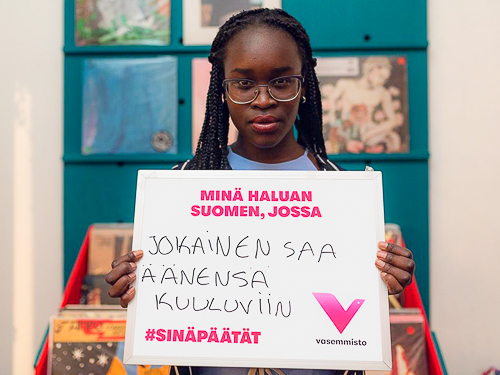 MINÄ HALUAN
SUOMEN, JOSSA
JOKAINEN SAA
ÄÄNENSÄ
KUULUVIIN
#SINÄPÄÄTÄT
vasemmisto